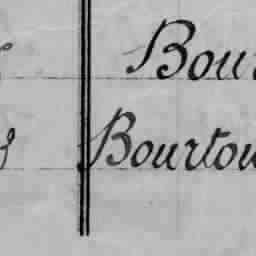 Bour
Bourtou